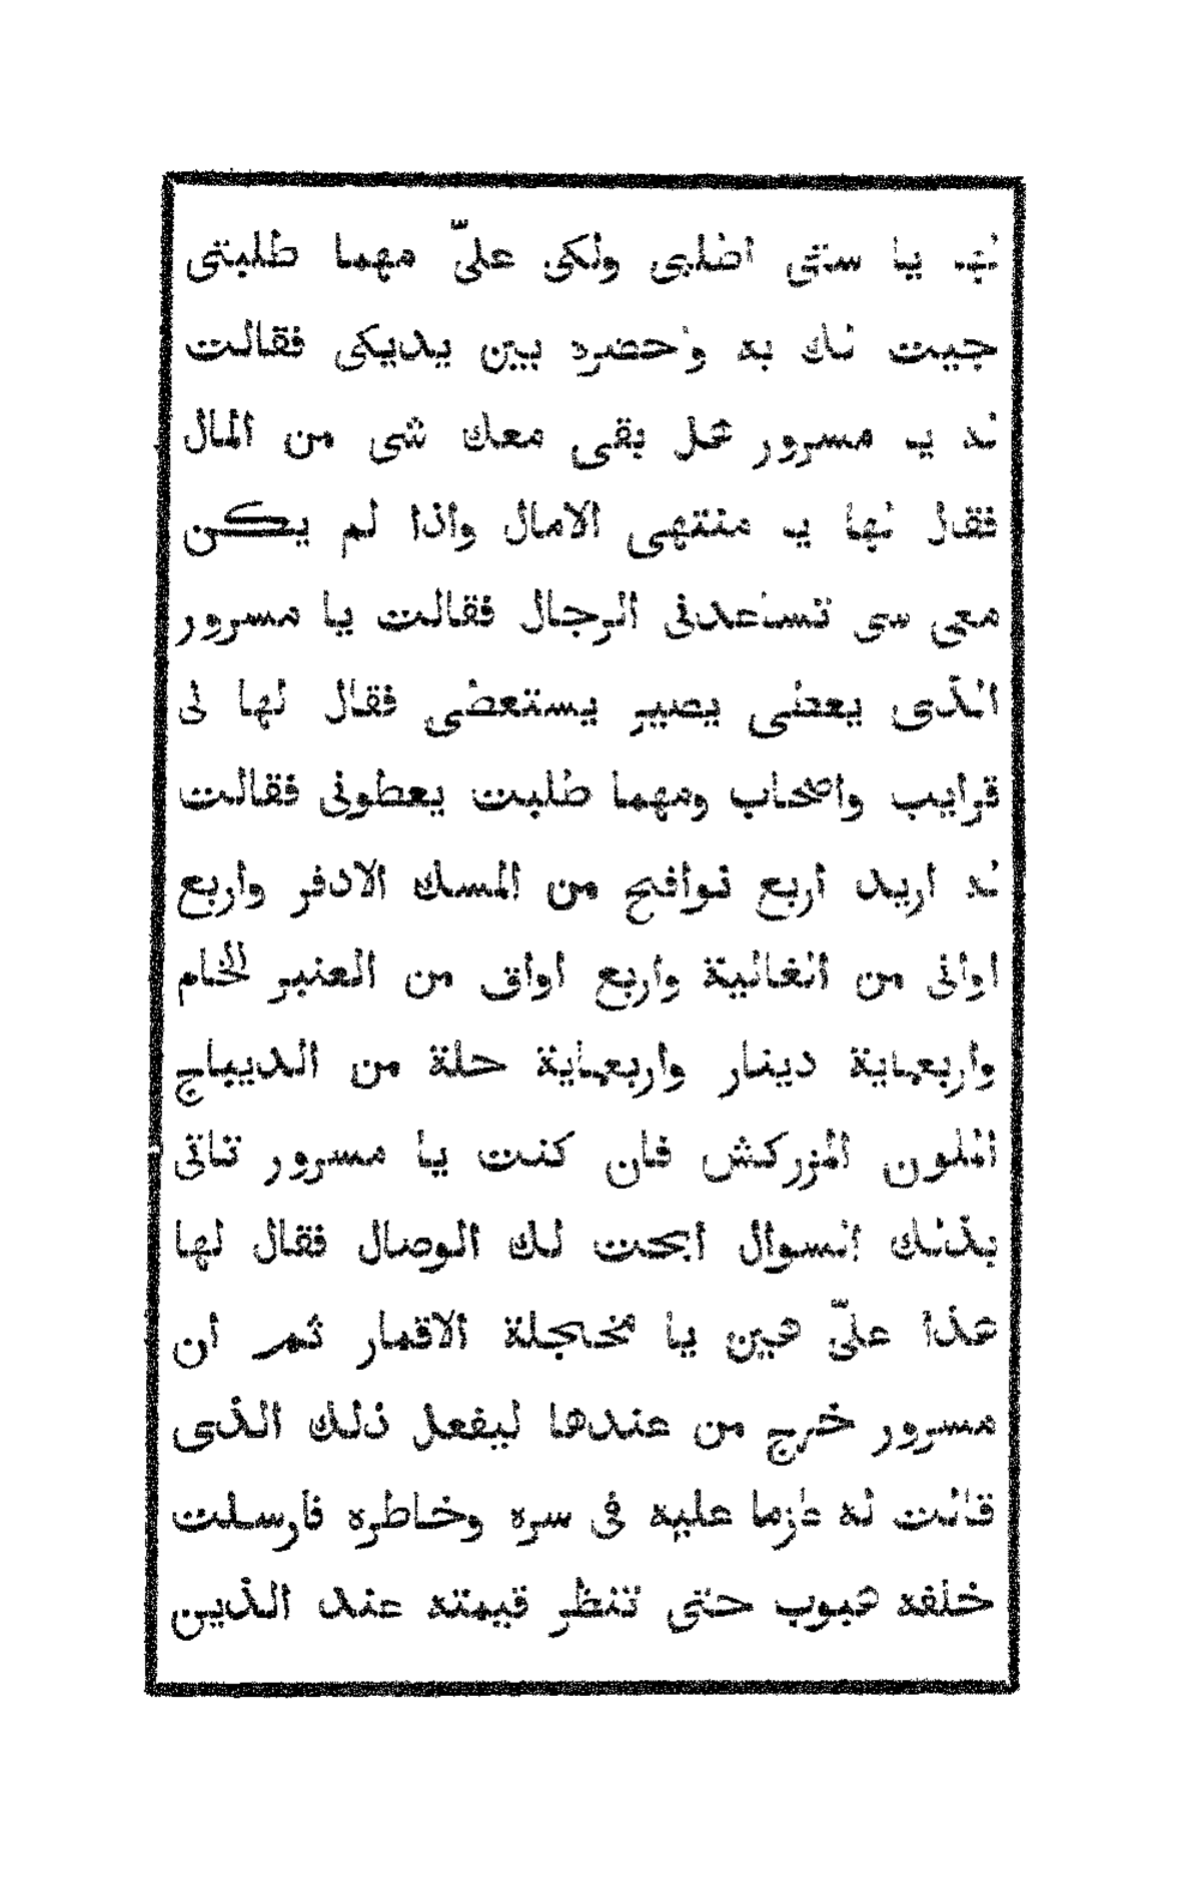 لها يا ستى اطلبى ولكى علىّ مهما طلبتى
جيت لك به واحضره بين يديكى فقالت
له يا مسرور هل بقى معك شى من المال
فقال لها يا منتهى الامال واذا لم يكن
معى شى تساعدنى الرجال فقالت يا مسرور
الذى يعطى يصير يستعطى فقال لها لى
قرايب واصحاب ومهما طلبت يعطونى فقالت
له اريد اربع نوافح من المسك الادفر واربع
اواقى من الغالية واربع اواق من العنبر الخام
واربعماية دينار واربعماية حلة من الديباج
الملون المزركش فان كنت يا مسرور تاتى
بذلك السوال ابحت لك الوصال فقال لها
هذا علىّ هين يا مخجلة الاقمار ثم ان
مسرور خرج من عندها ليفعل ذلك الذى
قالت له عازما عليه فى سره وخاطره فارسلت
خلفه هبوب حتى تنظر قيمته عند الذين